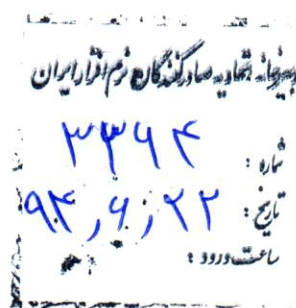 دبیرخانه اتحادیه صادرکنندگان نرم افزار ایران
شماره : ۳۳۶۴
تاریخ : ۹۴,۶,۲۲
ساعت ورود :